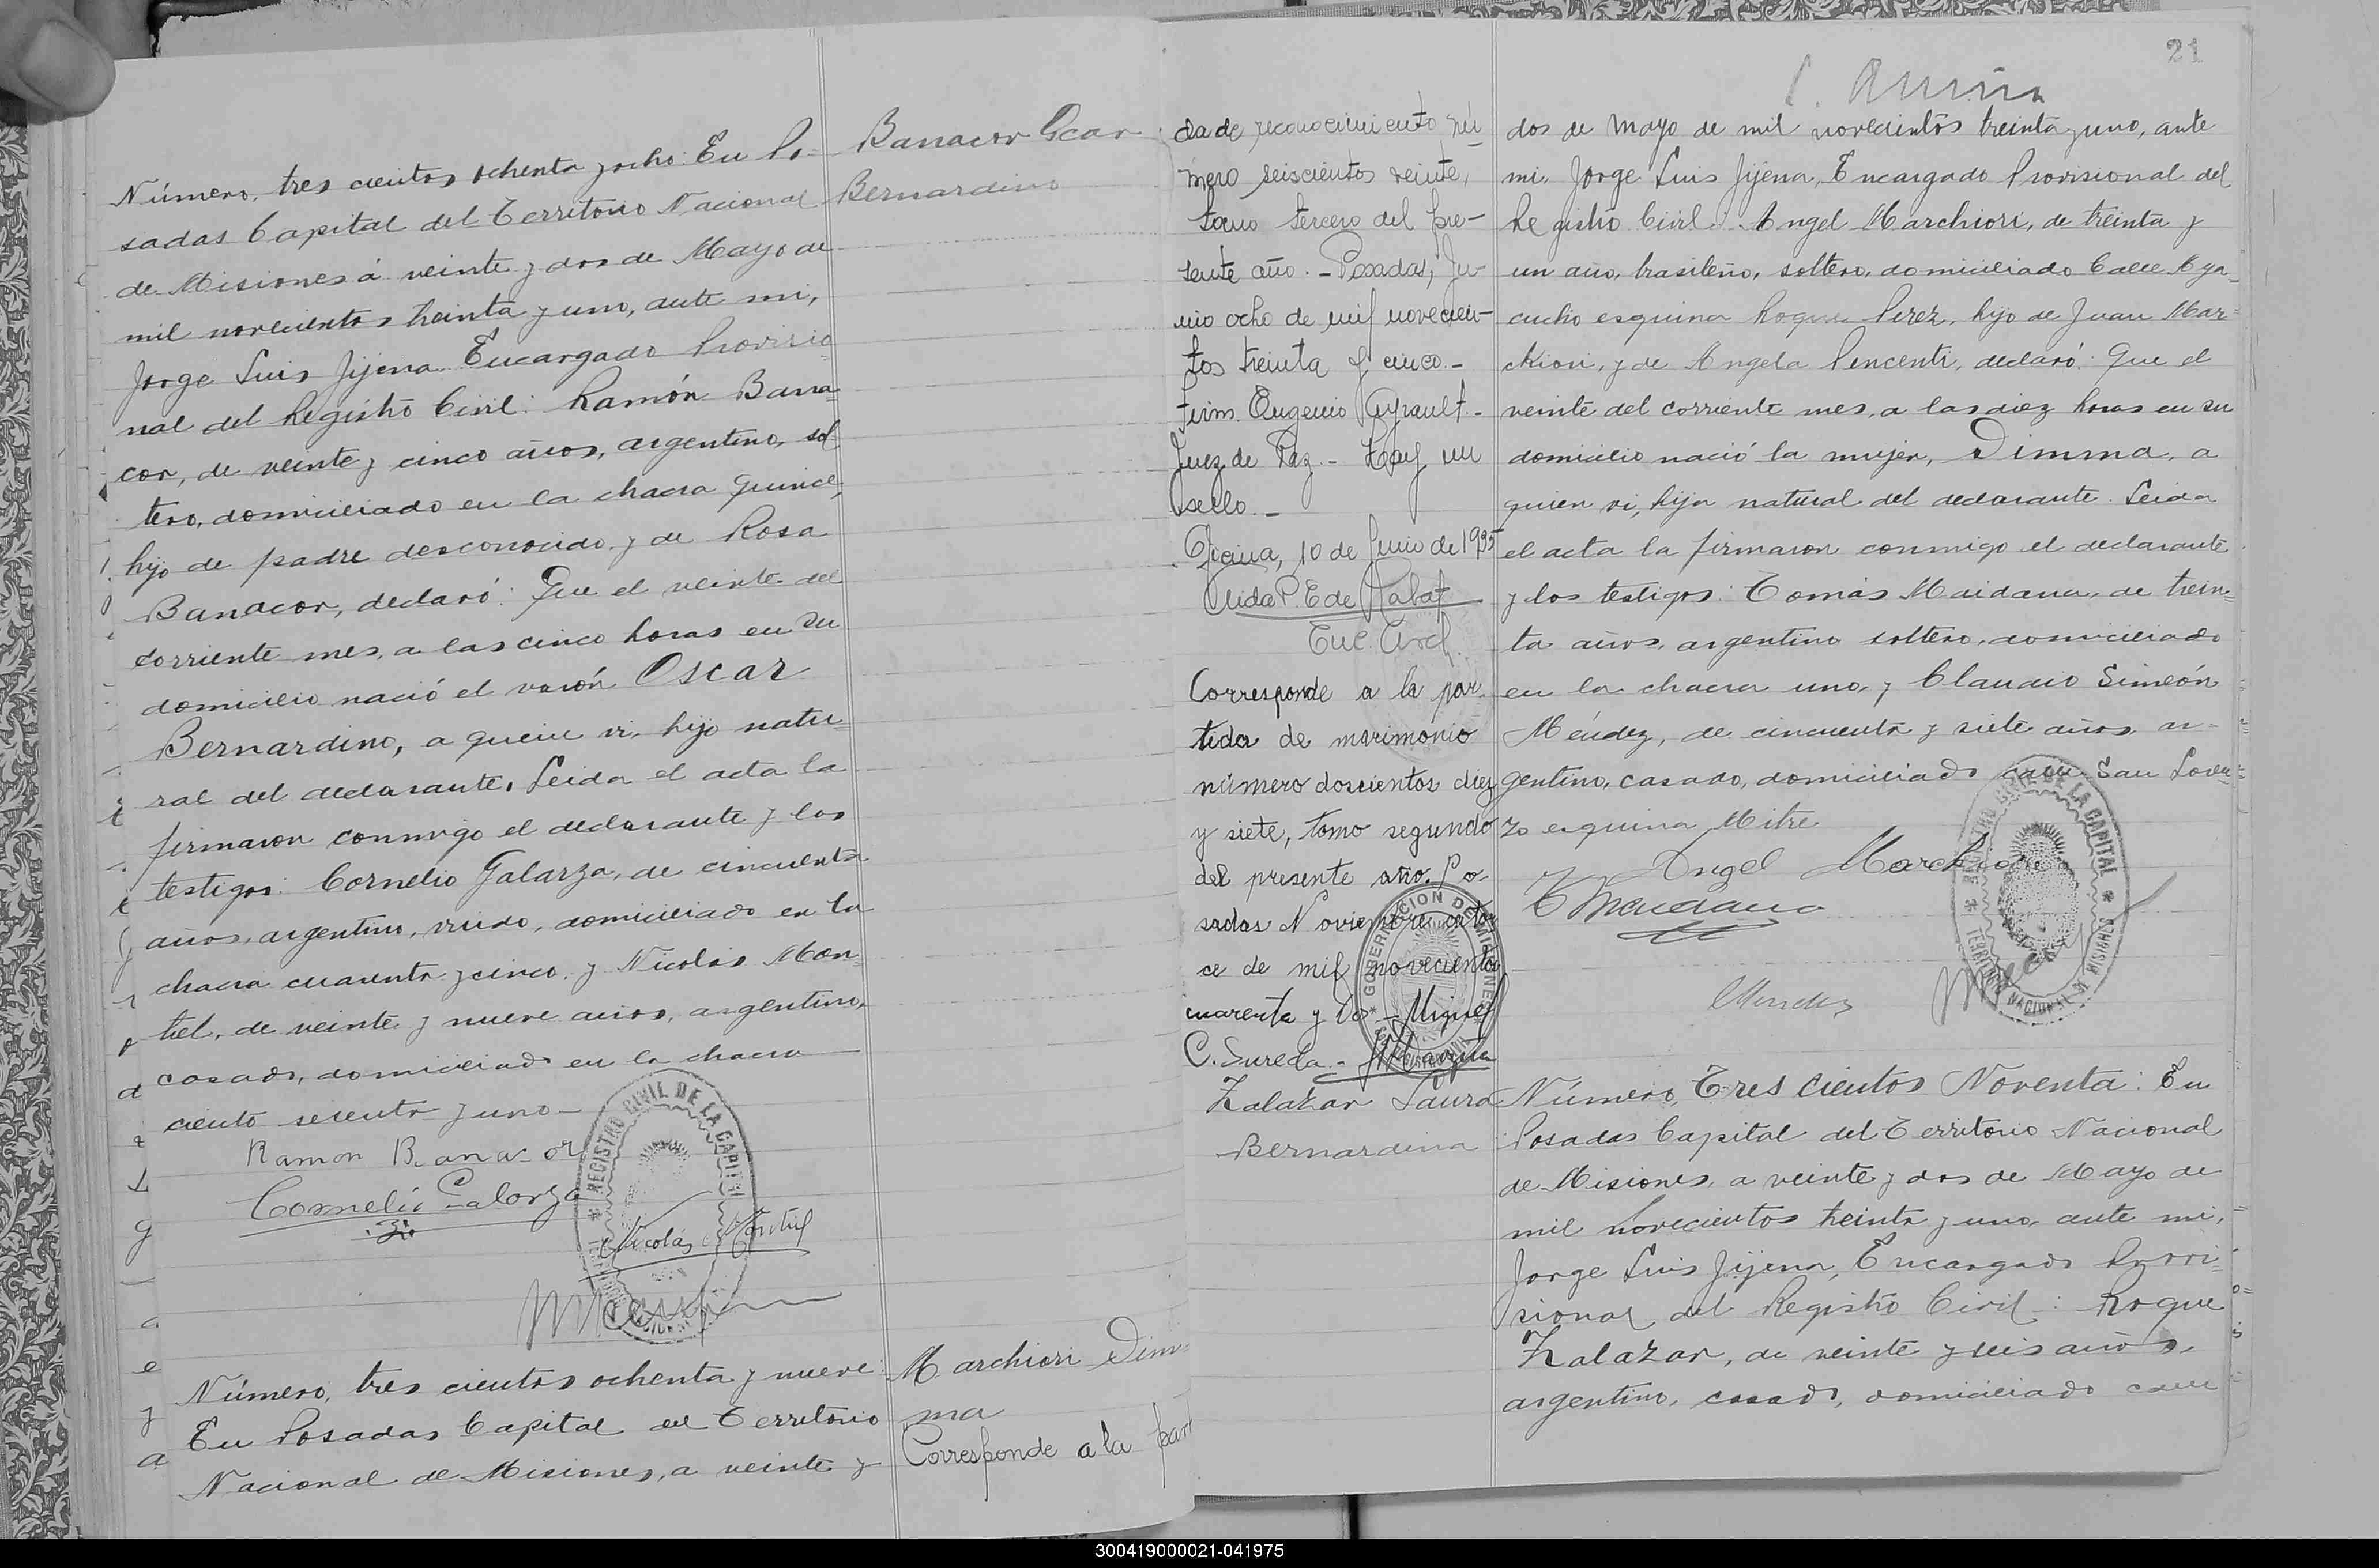 Número, tres cientos ochenta y ocho: En Po-
sadas Capital del Territorio Nacional
de Misiones á veinte y dos de Mayo de
mil novecientos treinta y uno, ante mi,
Jorge Luis Jijena Encargado Provisio
nal del Registro Civil: Ramón Bana-
cor, de veinte y cinco años, argentino, sol
tero, domiciliado en la chacra quince,
hijo de padre desconocido y de Rosa
Banacor, declaró: Que el veinte del
corriente mes, a las cinco horas en su
domicilio nació el varón Oscar
Bernardino, a quien vi, hijo natu-
ral del declarante. Leida el acta la
firmaron conmigo el declarante y los
testigos: Cornelio Galarza, de cincuenta
años, argentino, viudo, domiciliado en la
chacra cuarenta y cinco, y Nicolás Mon-
tiel, de veinte y nueve años, argentino,
casado, domiciliado en la chacra
ciento sesenta y uno-
Ramon Banacor
Cornelio Galarza
Nicolás Montiel
REGISTRO CIVIL DE LA CAPITAL
Número, tres cientos ochenta y nueve:
En Posadas Capital del Territorio
Nacional de Misiones, a veinte y
Banacor Oscar
Bernardino
Marchiori Dim-
ma
Corresponde a la part
21
da de reconocimiento nú-
mero seiscientos veinte,
tomo tercero del pre-
sente año. - Posadas, Ju-
nio ocho de mil novecien-
tos treinta y cinco.-
Firm. Eugenio Ayrault.-
Juez de Paz.- Hay un
sello.-
Oficina, 10 de Junio de 1935
Aida P. E de Rabat
Enc. Arch.
Corresponde a la par-
tida de matrimonio
número doscientos diez
y siete, tomo segundo
del presente año. Po-
sadas Noviembre cator
ce de mil novecientos
cuarenta y dos - Miguel
C. Sureda.-
GOBERNACION DE MISIONES
Zalazar Laura
Bernardina
dos de Mayo de mil novecintos treinta y uno, ante
mi, Jorge Luis Jijena, Encargado Provisional del
Registro Civil: Angel Marchiori, de treinta y
un año, brasileño, soltero, domiciliado Calle Aya-
cucho esquina Roque Perez, hijo de Juan Mar-
chiori, y de Angela Pencenti, declaró: Que el
veinte del corriente mes, a las diez horas en su
domicilio nació la mujer, Dimma, a
quien vi, hija natural del declarante. Leida
el acta la firmaron conmigo el declarante
y los testigos: Tomás Maidana, de trein-
ta años, argentino soltero, domiciliado
en la chacra uno, y Claudio Simeón
Méndez, de cincuenta y siete años, ar-
gentino, casado, domiciliado calle San Loren-
zo esquina Mitre
Angel Marchiori
T Maidana
CMendez
REGISTRO CIVIL DE LA CAPITAL * TERRITORIO NACIONAL MISIONES *
Número, Tres cientos Noventa: En
Posadas Capital del Territorio Nacional
de Misiones, a veinte y dos de Mayo de
mil novecientos treinta y uno, ante mi,
Jorge Luis Jijena, Encargado Provi-
sional del Registro Civil: Roque
Zalazar, de veinte y seis años,
argentino, casado, domiciliado calle
300419000021-041975